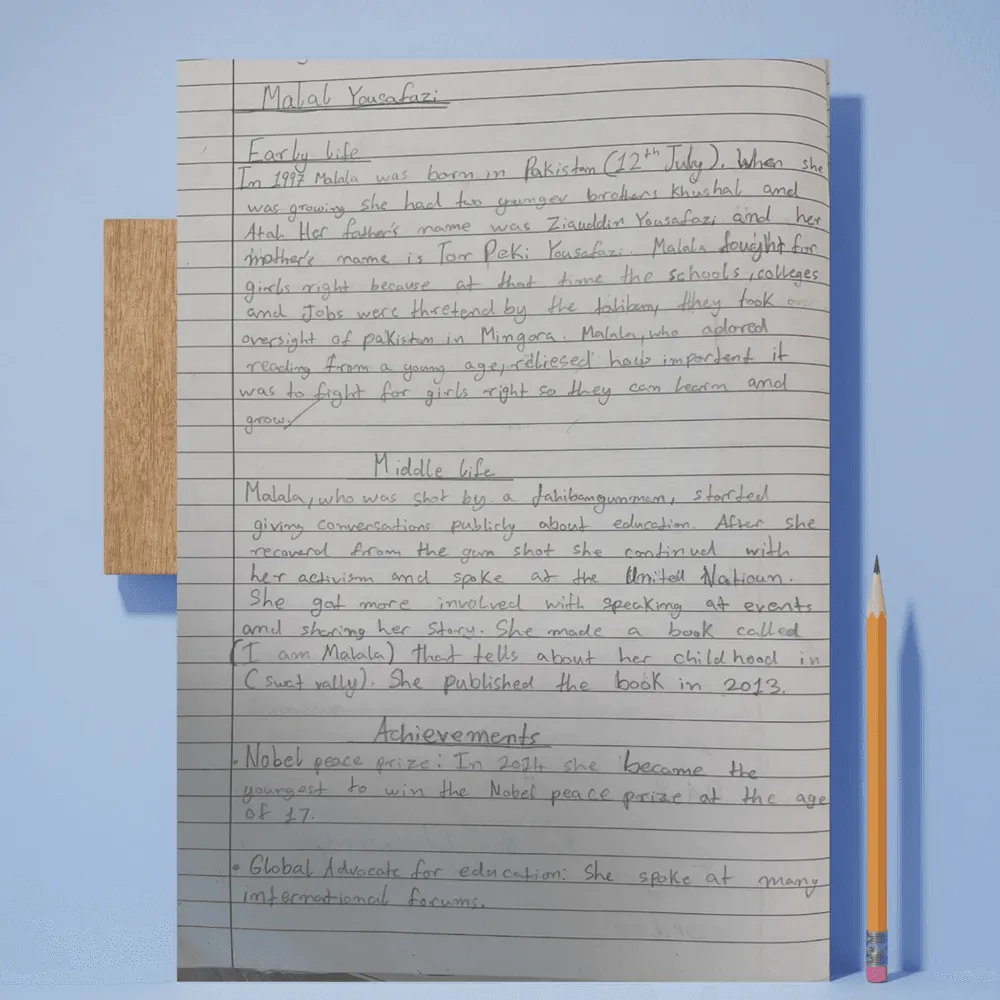 Malal Yousafazi
Early life
In 1997 Malala was born in Pakistan (12th July). When she
was growing she had two younger brothers Khushal and
Atal. Her father's name was Ziauddin Yousafazi and her
mother's name is Tor Peki Yousafazi. Malala fought for
girls right because at that time the schools, colleges
and Jobs were thretend by the taliban, they took
oversight of pakistan in Mingora. Malala, who adored
reading from a young age, reliesed how importent it
was to fight for girls right so they can learn and
grow.
Middle life
Malala, who was shot by a tahibangunman, started
giving conversations publicly about education. After she
recoverd from the gun shot she continued with
her activism and spoke at the United Natioun.
She got more involved with speaking at events
and sharing her story. She made a book called
(I am Malala) that tells about her childhood in
(swat vally). She published the book in 2013.
Achievements
• Nobel peace prize: In 2014 she became the
youngest to win the Nobel peace prize at the age
of 17.
• Global Advocate for education: She spoke at many
international forums.